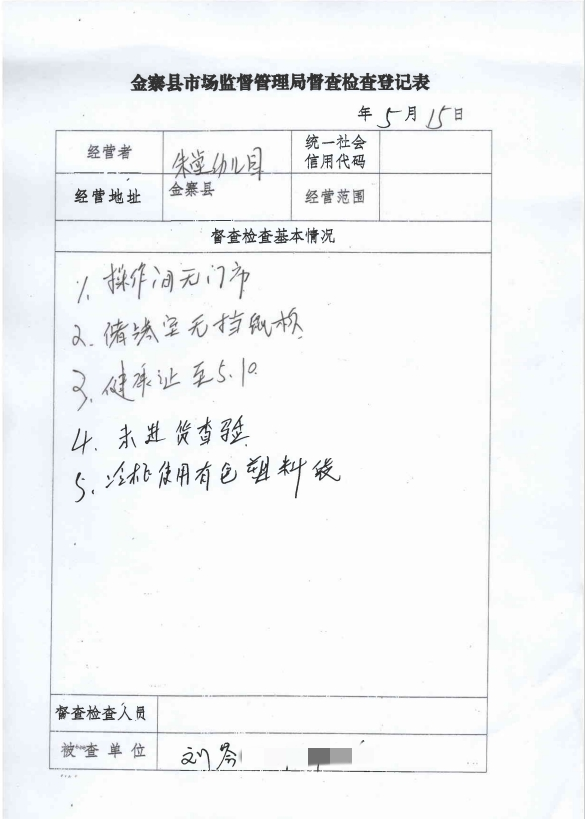 金寨县市场监督管理局督查检查登记表
年 5 月 15 日
经营者 朱堂幼儿园 统一社会信用代码
经营地址 金寨县 经营范围
督查检查基本情况
1. 操作间无门帘
2. 储藏室无挡鼠板
3. 健康证至5.10.
4. 未进货查验
5. 冷柜使用有色塑料袋
督查检查人员
被查单位 刘